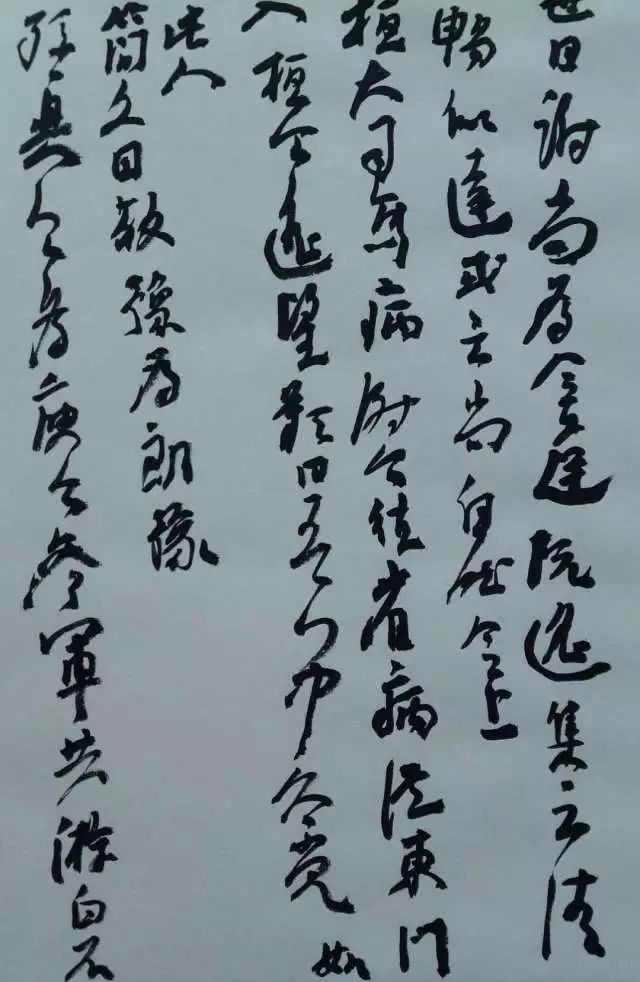 世目謝尚為令達阮遙集云清
暢似達或云尚自然令上
桓大司馬病謝公往省病從東門
入桓公遙望歎曰吾門中久不見如
此人
簡文目敬豫為朗豫
孫興公為庾公參軍共游白石